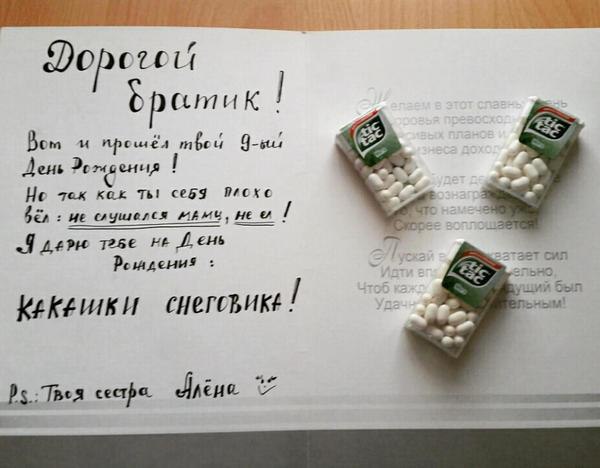 Дорогой
братик!
Вот и прошёл твой 9-ый
День Рождения!
Но так как ты себя плохо
вёл: не слушался маму, не ел!
Я дарю тебе на День
Рождения:
КАКАШКИ СНЕГОВИКА!
P.s.: Твоя сестра Алёна
Желаем в этот славный день
превосход
плани
доход
будет
вознаграж
что намечено
Скорее воплощается!
Пускай хватает сил
Идти
Чтоб кажд дущий был
Удач ительным!
tic tac
tic tac
tic tac